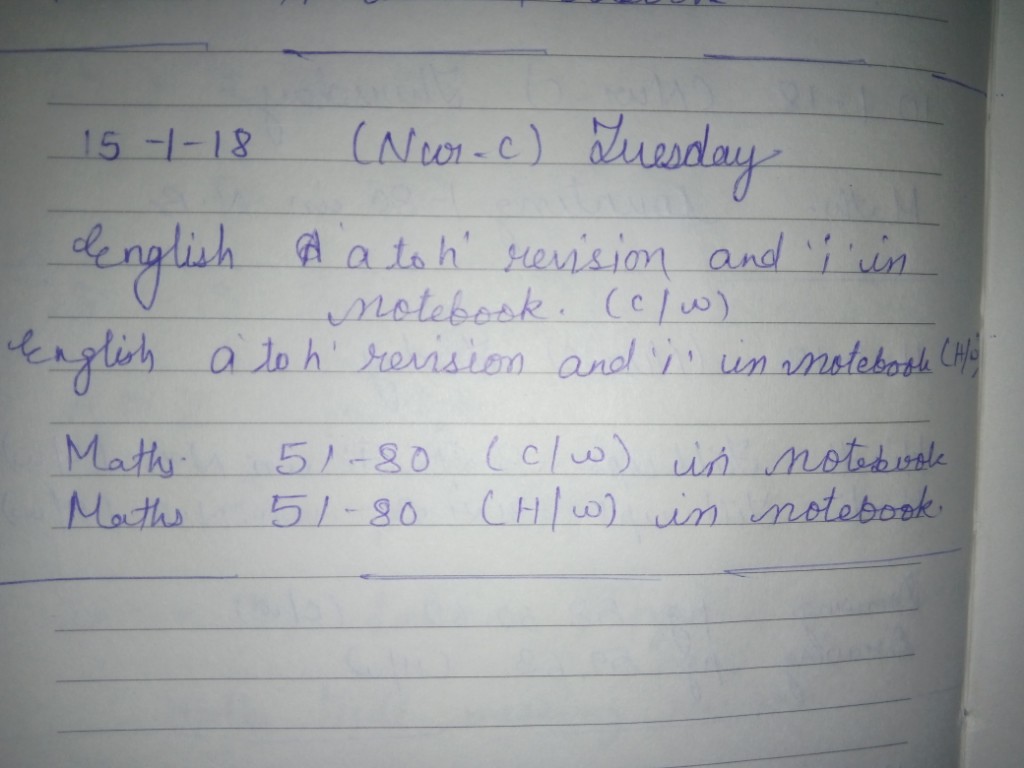 15-1-18 (Nur-C) Tuesday
English 'a to h' revision and 'i' in
notebook. (C/w)
English 'a to h' revision and 'i' in notebook (H/w)
Maths. 51-80 (C/w) in notebook
Maths 51-80 (H/w) in notebook.